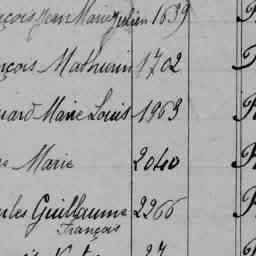 nçois Jean Marie Julien 1639
nçois Mathurin 1702
uard Marie Louis 1963
Marie 2040
rles Guillaume 2266
François
27